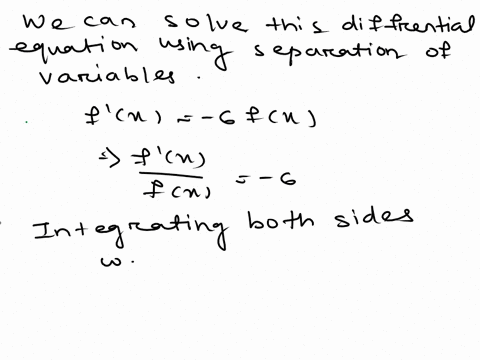 We can solve this diffrential
equation using separation of
variables.
f'(x) = -6 f(x)
⇒ f'(x)/f(x) = -6
Integrating both sides
w.